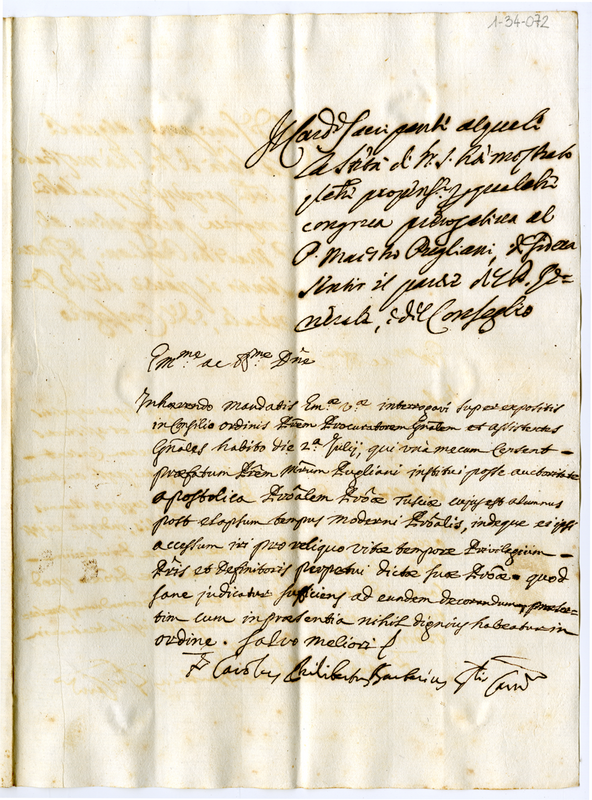 1-34-072
Il Card. Sacripanti al quale
la Stà di N. S. hà mostrato
propens. qualche
congrua prerogativa al
P. Maestro Pugliani, desidera
sentir il parere del P. Ge=
nerale, e del Conseglio
Em.me ac R.me Dne
Inhaerendo mandatis Em.ae V.ae interrogavi super expositis
in Consilio ordinis Prem Procuratorem Gnalem et assistentes
Gnales habito die 2.a Julij, qui una mecum censent =
praefatum Prem Mrum Puglianii institui posse auctoritate
apostolica Provlem Provae Tusciae cujus est alumnus
post elapsum tempus moderni Provlis, indeque ei
accessum iri pro reliquo vitae tempore Privilegium =
Pris et Definitoris perpetui dictae suae Provae quod
sane judicatur sufficiens ad eundem decorandum, praeser=
tim cum in praesentia nihil dignius habeatur in
ordine. Salvo meliori
Fr Carolus Philibertus Barberius